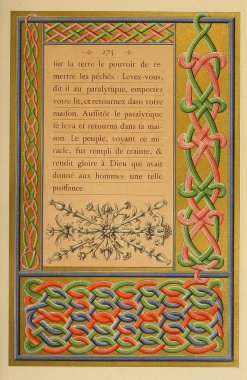 275
ſur la terre le pouvoir de re-
mettre les péchés : Levez-vous,
dit-il au paralytique, emportez
votre lit, et retournez dans votre
maiſon. Auſſitôt le paralytique
ſe leva et retourna dans ſa mai-
ſon. Le peuple, voyant ce mi-
racle, fut rempli de crainte, &
rendit gloire à Dieu qui avait
donné aux hommes une telle
puiſſance.